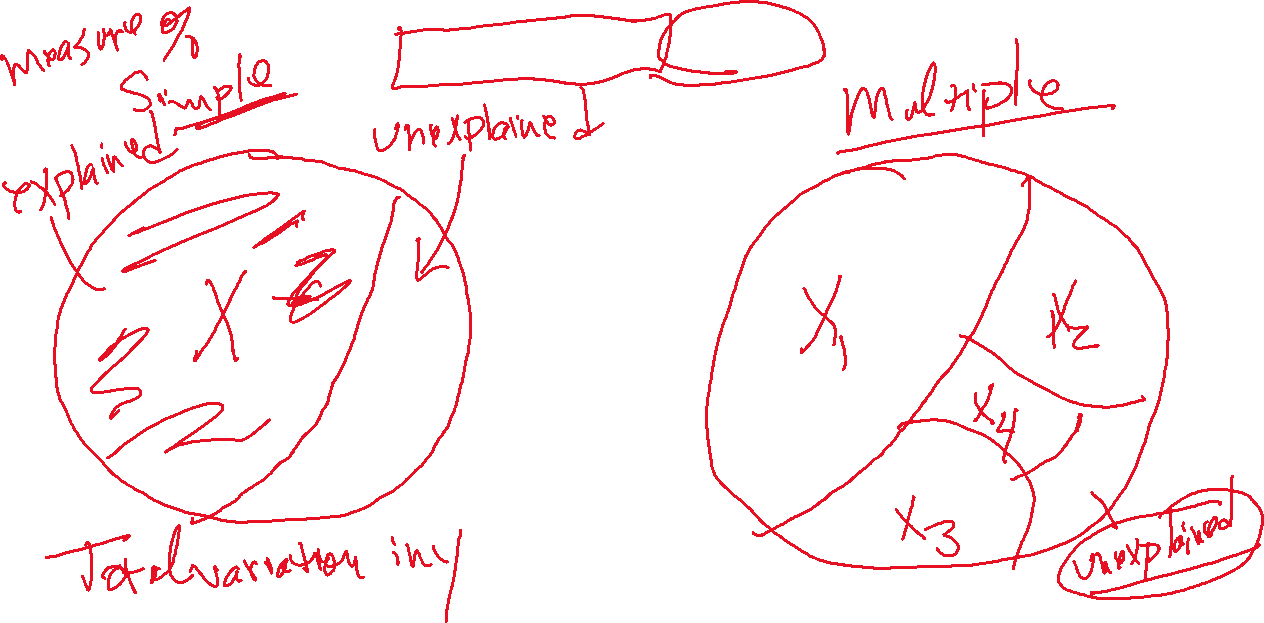 measure %
Simple
explained
unexplained
X
Total variation in y
Multiple
X1
X2
X4
X3
unexplained